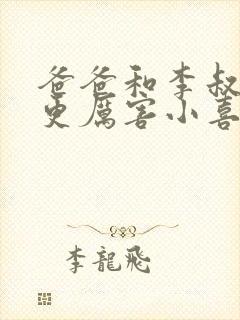 爸爸和李叔
更厲害小喜
李龍飛